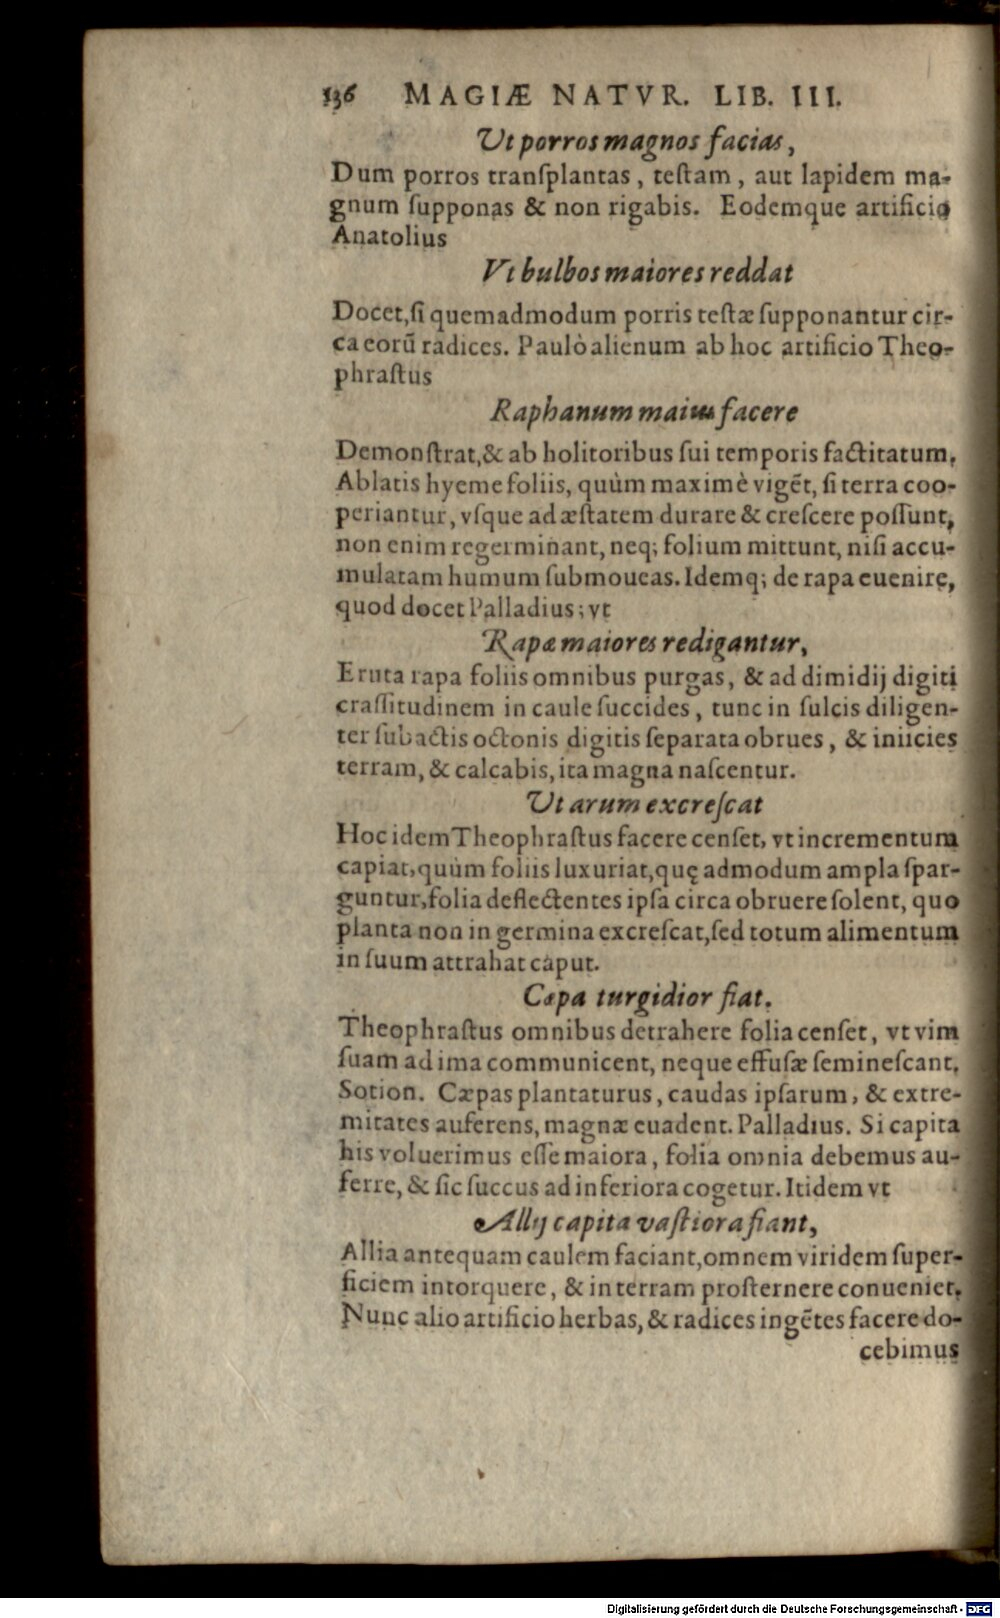 136 MAGIÆ NATVR. LIB. III.
Ut porros magnos facias,
Dum porros tranſplantas, teſtam, aut lapidem ma-
gnum ſupponas & non rigabis. Eodemque artificio
Anatolius
Vt bulbos maiores reddat
Docet, ſi quemadmodum porris teſtæ ſupponantur cir-
ca eorũ radices. Paulò alienum ab hoc artificio Theo-
phraſtus
Raphanum maius facere
Demonſtrat, & ab holitoribus ſui temporis factitatum.
Ablatis hyeme foliis, quùm maximè vigẽt, ſi terra coo-
periantur, vſque ad æſtatem durare & creſcere poſſunt,
non enim regerminant, neq; folium mittunt, niſi accu-
mulatam humum ſubmoueas. Idemq; de rapa euenire,
quod docet Palladius; vt
Rapæ maiores redigantur,
Eruta rapa foliis omnibus purgas, & ad dimidij digiti
craſſitudinem in caule ſuccides, tunc in ſulcis diligen-
ter ſubactis octonis digitis ſeparata obrues, & iniicies
terram, & calcabis, ita magna naſcentur.
Ut arum excreſcat
Hoc idem Theophraſtus facere cenſet, vt incrementum
capiat, quùm foliis luxuriat, quę admodum ampla ſpar-
guntur, folia deflectentes ipſa circa obruere ſolent, quo
planta non in germina excreſcat, ſed totum alimentum
in ſuum attrahat caput.
Cæpa turgidior fiat.
Theophraſtus omnibus detrahere folia cenſet, vt vim
ſuam ad ima communicent, neque effuſæ ſemineſcant.
Sotion. Cæpas plantaturus, caudas ipſarum, & extre-
mitates auferens, magnæ euadent. Palladius. Si capita
his voluerimus eſſe maiora, folia omnia debemus au-
ferre, & ſic ſuccus ad inferiora cogetur. Itidem vt
Allij capita vaſtiora fiant,
Allia antequam caulem faciant, omnem viridem ſuper-
ficiem intorquere, & in terram proſternere conueniet.
Nunc alio artificio herbas, & radices ingẽtes facere do-
cebimus
Digitalisierung gefördert durch die Deutsche Forschungsgemeinschaft - DFG